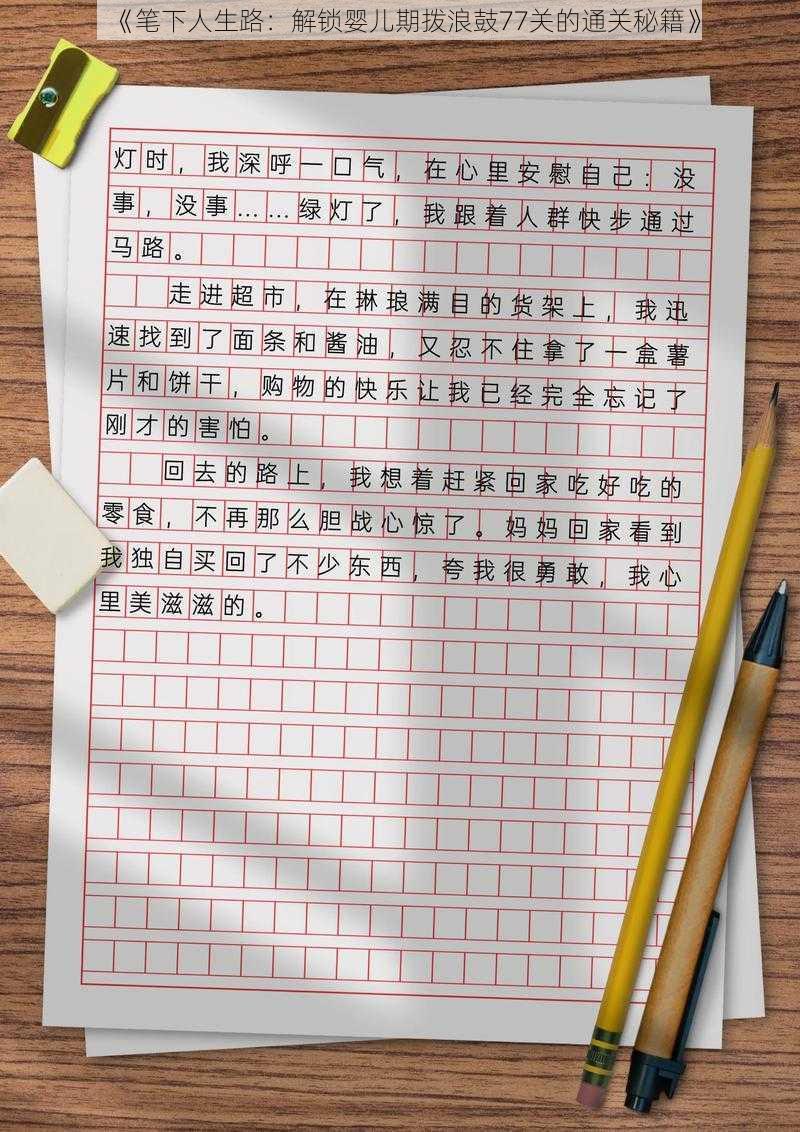 《笔下人生路：解锁婴儿期拨浪鼓77关的通关秘籍》
灯时，我深呼一口气，在心里安慰自己：没
事，没事……绿灯了，我跟着人群快步通过
马路。
走进超市，在琳琅满目的货架上，我迅
速找到了面条和酱油，又忍不住拿了一盒薯
片和饼干，购物的快乐让我已经完全忘记了
刚才的害怕。
回去的路上，我想着赶紧回家吃好吃的
零食，不再那么胆战心惊了。妈妈回家看到
我独自买回了不少东西，夸我很勇敢，我心
里美滋滋的。